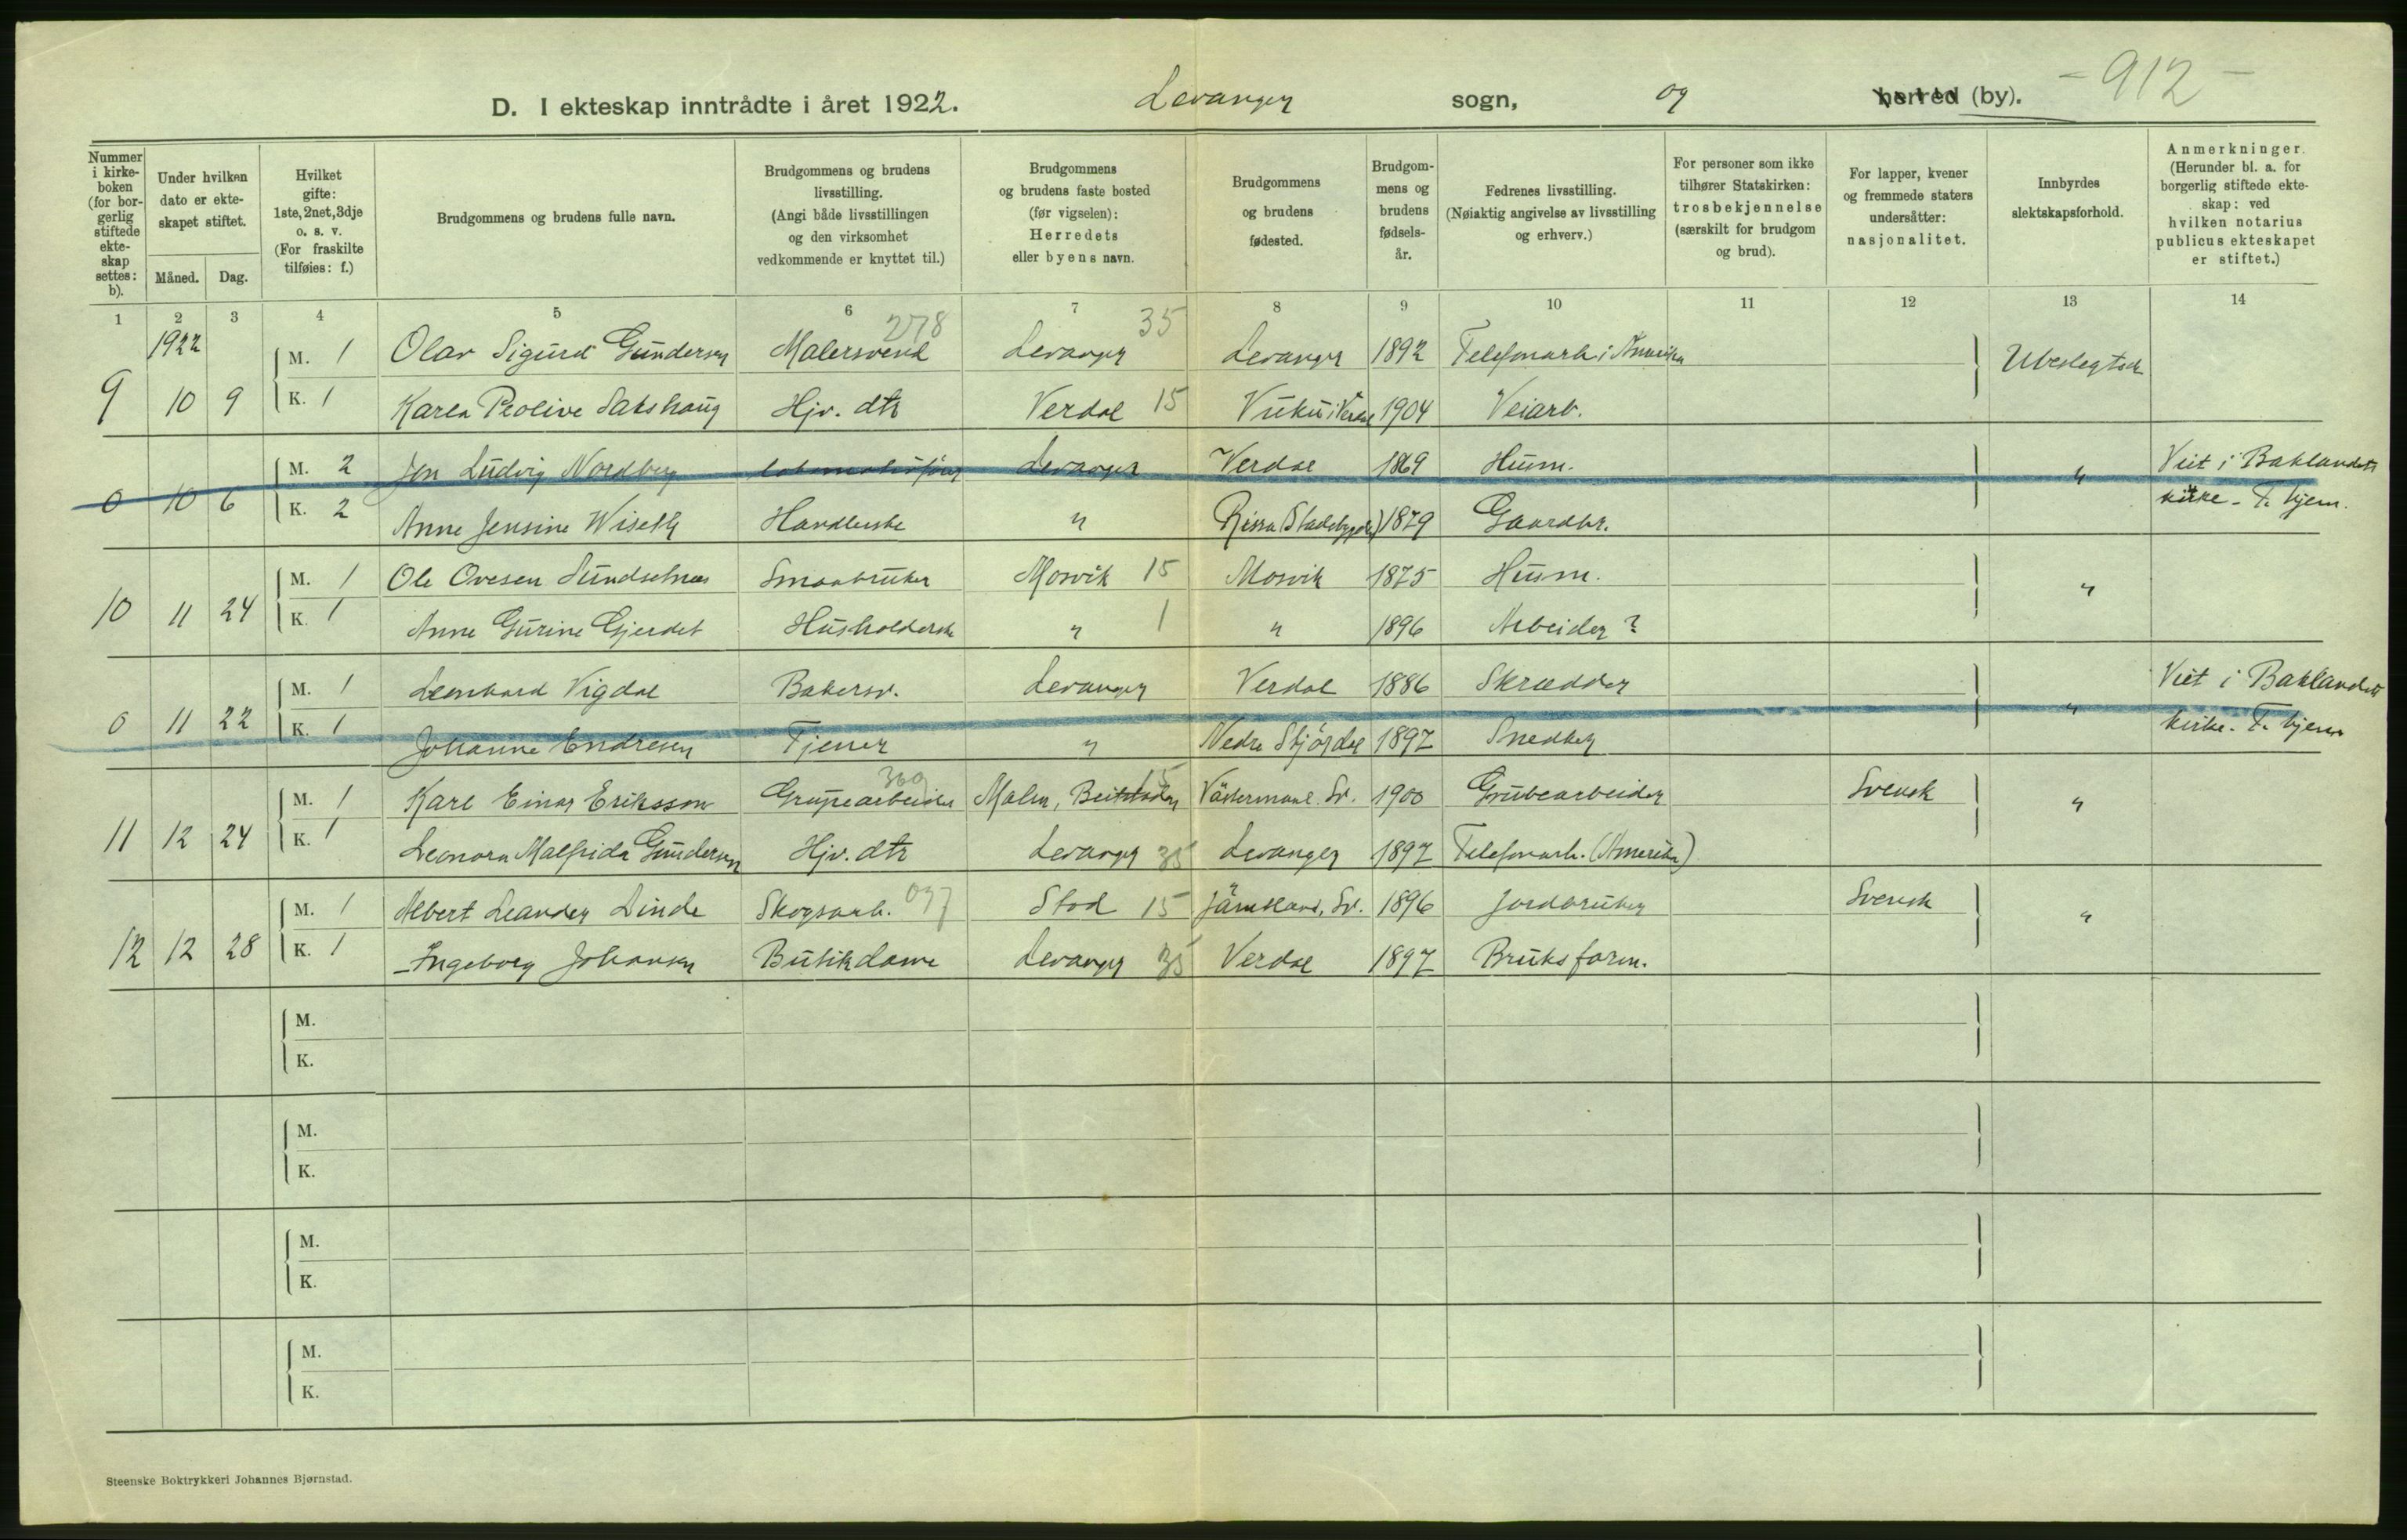 D. I ekteskap inntrådte i året 1922. Levanger sogn, og herred (by). - 912 -
Nummer i kirke-boken (for bor-gerlig stiftede ekte-skap settes: b).
Under hvilken dato er ekte-skapet stiftet.
Måned. Dag.
Hvilket gifte: 1ste, 2net, 3dje o. s. v. (For fraskilte tilføies: f.)
Brudgommens og brudens fulle navn.
Brudgommens og brudens livsstilling. (Angi både livsstillingen og den virksomhet vedkommende er knyttet til.)
Brudgommens og brudens faste bosted (før vigselen): Herredets eller byens navn.
Brudgommens og brudens fødested.
Brudgom-mens og brudens fødsels-år.
Fedrenes livsstilling. (Nøiaktig angivelse av livsstilling og erhverv.)
For personer som ikke tilhører Statskirken: trosbekjennelse (særskilt for brudgom og brud).
For lapper, kvener og fremmede staters undersåtter: nasjonalitet.
Innbyrdes slektskapsforhold.
Anmerkninger. (Herunder bl. a. for borgerlig stiftede ekte-skap: ved hvilken notarius publicus ekteskapet er stiftet.)
1 2 3 4 5 6 7 8 9 10 11 12 13 14
1922 278 35
M. 1 Olav Sigurd Gundersen Malersvend Levanger Levanger 1892 Telefonarb. i Amerika Ubeslegtede
9 10 9 K. 1 Karen Peolive Sakshaug Hjv. dtr Verdal 15 Vuku i Verdal 1904 Veiarb.
M. 2 Jon Ludvig Nordberg Lokomotivfører Levanger Verdal 1869 Husm. " Viet i Baklandets
0 10 6 K. 2 Anne Jensine Wiseth Handlerske " Rissa (Stadsbygden) 1879 Gaardbr. kirke - T. hjem.
M. 1 Ole Ovesen Sundsetnes Smaabruker Mosvik 15 Mosvik 1875 Husm. "
10 11 24 K. 1 Anne Gurine Gjerdet Husholderske " 1 " 1896 Arbeider ?
M. 1 Leonhard Vigdal Bakersv. Levanger Verdal 1886 Skrædder " Viet i Baklandets
0 11 22 K. 1 Johanne Endresen Tjener " Nedre Stjørdal 1897 Snedker kirke. T. hjem
369 15
M. 1 Karl Einar Eriksson Grubearbeider Malm, Beitstaden Västermanl. Sv. 1900 Grubearbeider Svensk "
11 12 24 K. 1 Leonora Malfrida Gundersen Hjv. dtr Levanger 35 Levanger 1897 Telefonarb. (Amerika)
M. 1 Albert Leander Linde Skogsarb. 037 Stod 15 Jämtland, Sv. 1896 Jordbruker Svensk "
12 12 28 K. 1 Ingeborg Johansen Butikdame Levanger 35 Verdal 1897 Bruksform.
M.
K.
M.
K.
M.
K.
M.
K.
Steenske Boktrykkeri Johannes Bjørnstad.